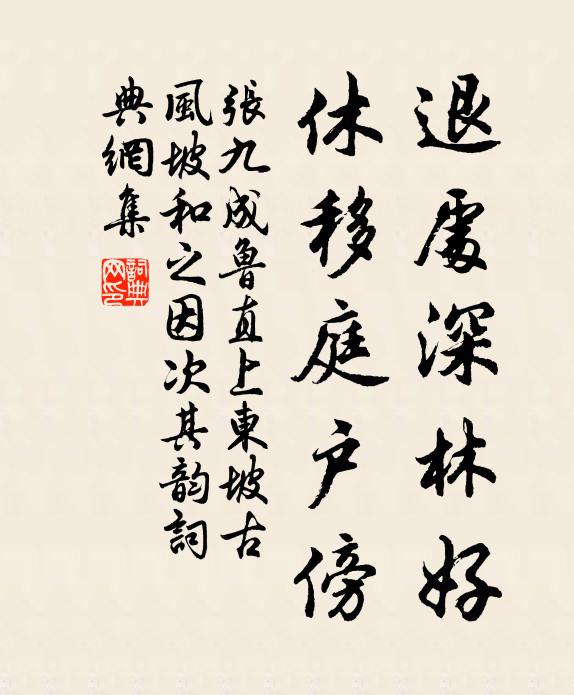 退處深林好
休移庭戶傍
張九成魯直上東坡古
風坡和之因次其韵詞
典網集
詞典
网印